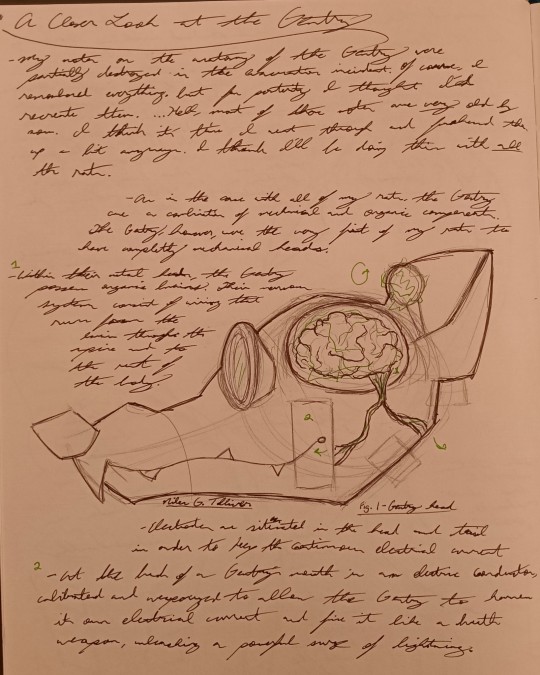 A Closer Look at the Gantry
- My notes on the anatomy of the Gantry were
partially destroyed in the incident. Of course, I
remembered everything, but for posterity I thought I'd
recreate them. ...Hell, most of those notes are very old by
now. I think it's time I went through and freshened them
up a bit anyways. I think I'll be doing this with all
the rats.
- As is the case with all of my rats, the Gantry
are a combination of mechanical and organic components.
The Gantry, however, were the very first of my rats to
have completely mechanical heads.
1
- Within their metal heads, the Gantry
possess organic brains. Their nervous
system consist of wiring that
runs from the
brain through the
spine and to
the rest of
the body.
1
2
Miles G. Tolliver
Fig. 1 - Gantry head
- Electrodes are situated in the head and tail
in order to keep the continuous electrical current
2 - At the back of a Gantry's mouth is an electric conductor,
calibrated and to allow the Gantry to harness
its own electrical current and fire it like a breath
weapon, unleashing a powerful surge of lightning.